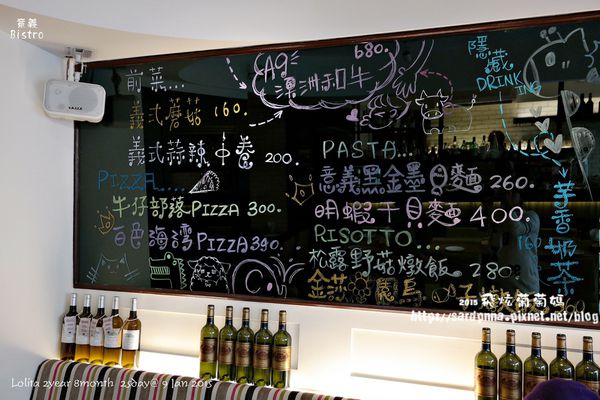 意義
Bistro
前菜...
義式蘑菇 160.
義式蒜辣中卷 200.
PIZZA....
牛仔部落PIZZA 300.
百色海灣PIZZA 340.
A9 澳洲和牛 680.
PASTA...
意義黑金墨貝麵 260.
明蝦干貝麵 400.
RISOTTO...
松露野菇燉飯 280.
隱藏
DRINKING
芋香奶茶
160
2015 飛炫葡萄媽
https://sardonna.pixnet.net/blog
Lolita 2year 8month 25day@ 9 Jan 2015